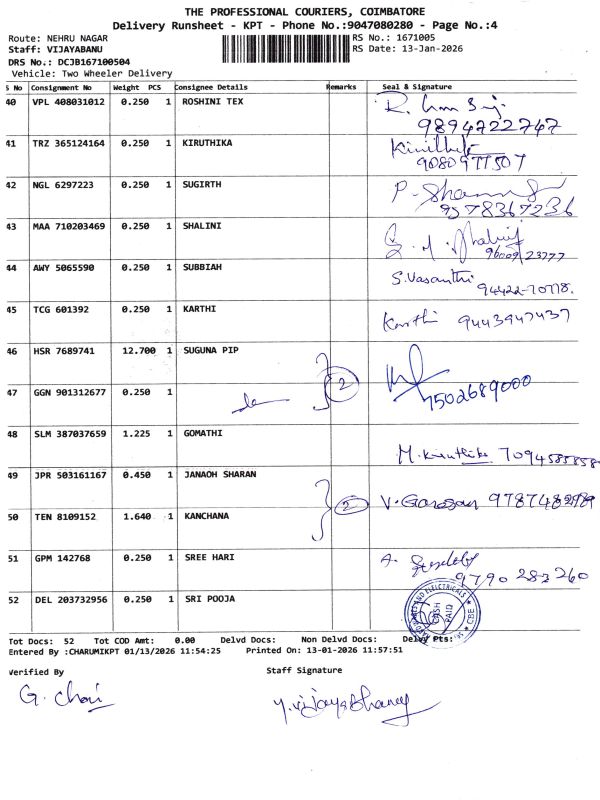 THE PROFESSIONAL COURIERS, COIMBATORE
Delivery Runsheet - KPT - Phone No.:9047080280 - Page No.:4
Route: NEHRU NAGAR
RS No.: 1671005
Staff: VIJAYABANU
RS Date: 13-Jan-2026
DRS No.: DCJB167100504
Vehicle: Two Wheeler Delivery
S No Consignment No Weight PCS Consignee Details Remarks Seal & Signature
40 VPL 408031012 0.250 1 ROSHINI TEX
9894722747
41 TRZ 365124164 0.250 1 KIRUTHIKA
9080977507
42 NGL 6297223 0.250 1 SUGIRTH
9578367236
43 MAA 710203469 0.250 1 SHALINI
96009/23777
44 AWY 5065590 0.250 1 SUBBIAH S.Vasanthi
94422-70778.
45 TCG 601392 0.250 1 KARTHI Karthi 9443947437
46 HSR 7689741 12.700 1 SUGUNA PIP
2
7502689000
47 GGN 901312677 0.250 1
48 SLM 387037659 1.225 1 GOMATHI
M.Kiruthika 7094585858
49 JPR 503161167 0.450 1 JANAOH SHARAN
2 V.Ganesan
50 TEN 8109152 1.640 1 KANCHANA
51 GPM 142768 0.250 1 SREE HARI
9790283260
52 DEL 203732956 0.250 1 SRI POOJA
CASH PAID
CBE
Tot Docs: 52 Tot COD Amt: 0.00 Delvd Docs: Non Delvd Docs: Delvy Pts:
Entered By :CHARUMIKPT 01/13/2026 11:54:25 Printed On: 13-01-2026 11:57:51
Verified By
Staff Signature